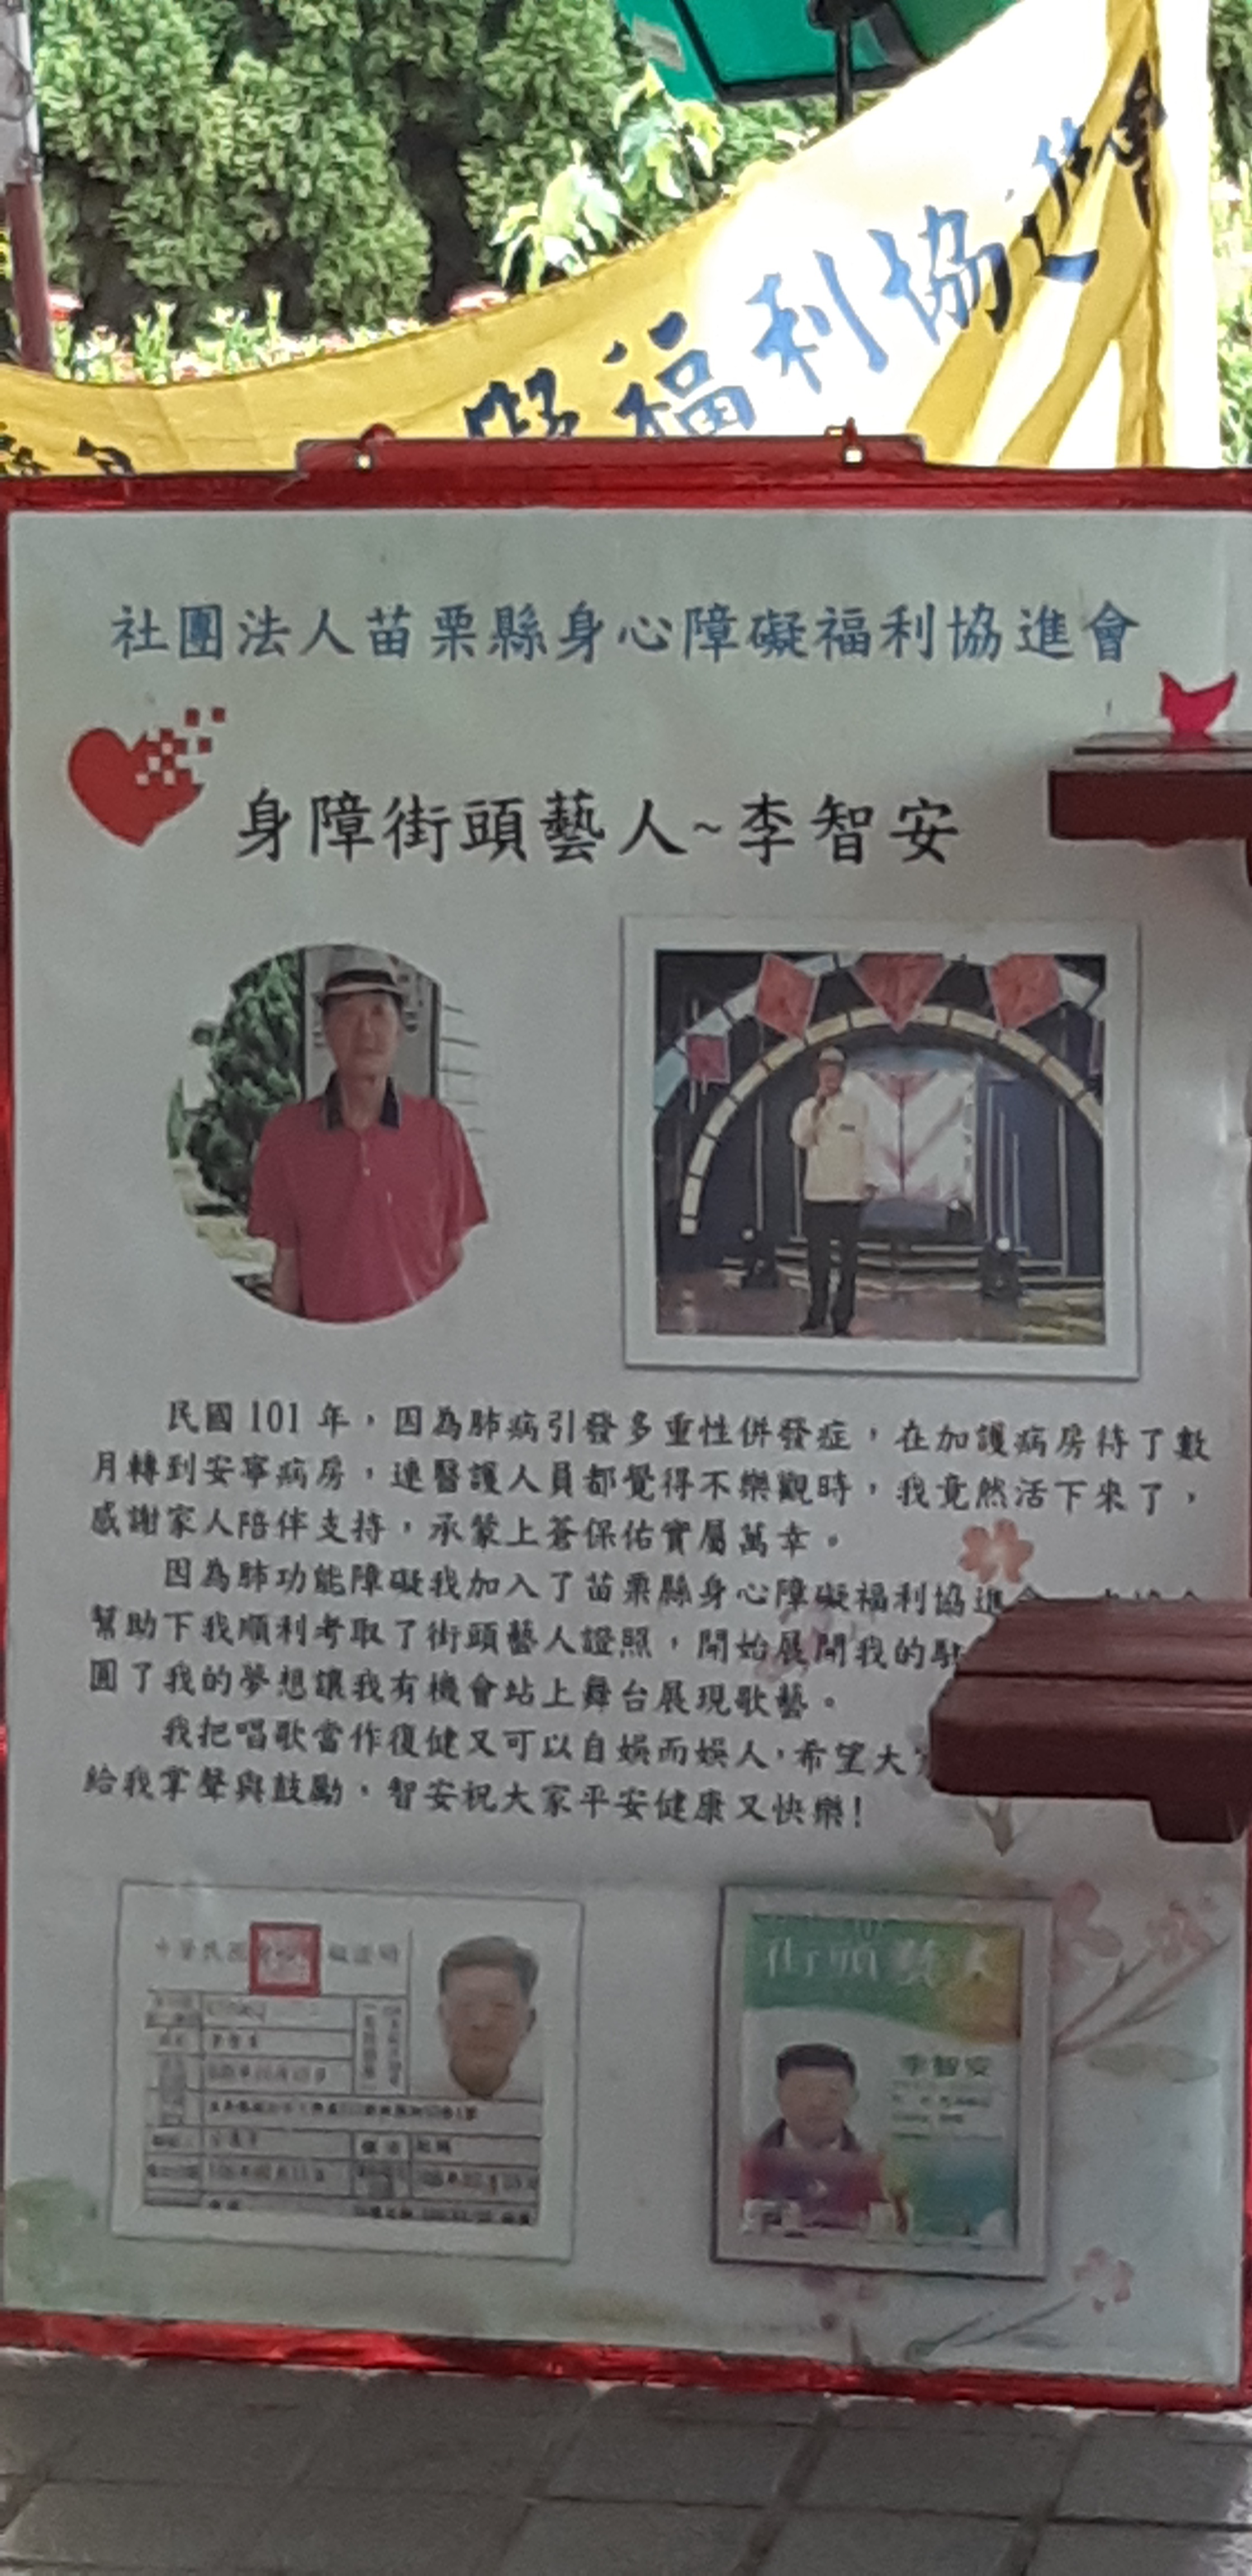 礙福利協進會
社團法人苗栗縣身心障礙福利協進會
身障街頭藝人~李智安
民國 101 年，因為肺病引發多重性併發症，在加護病房待了數
月轉到安寧病房，連醫護人員都覺得不樂觀時，我竟然活下來了，
感謝家人陪伴支持，承蒙上蒼保佑實屬萬幸。
因為肺功能障礙我加入了苗栗縣身心障礙福利協進
幫助下我順利考取了街頭藝人證照，開始展開我的
圓了我的夢想讓我有機會站上舞台展現歌藝。
我把唱歌當作復健又可以自娛而娛人，希望大
給我掌聲與鼓勵，智安祝大家平安健康又快樂!
中華民國
街頭藝人
李智安